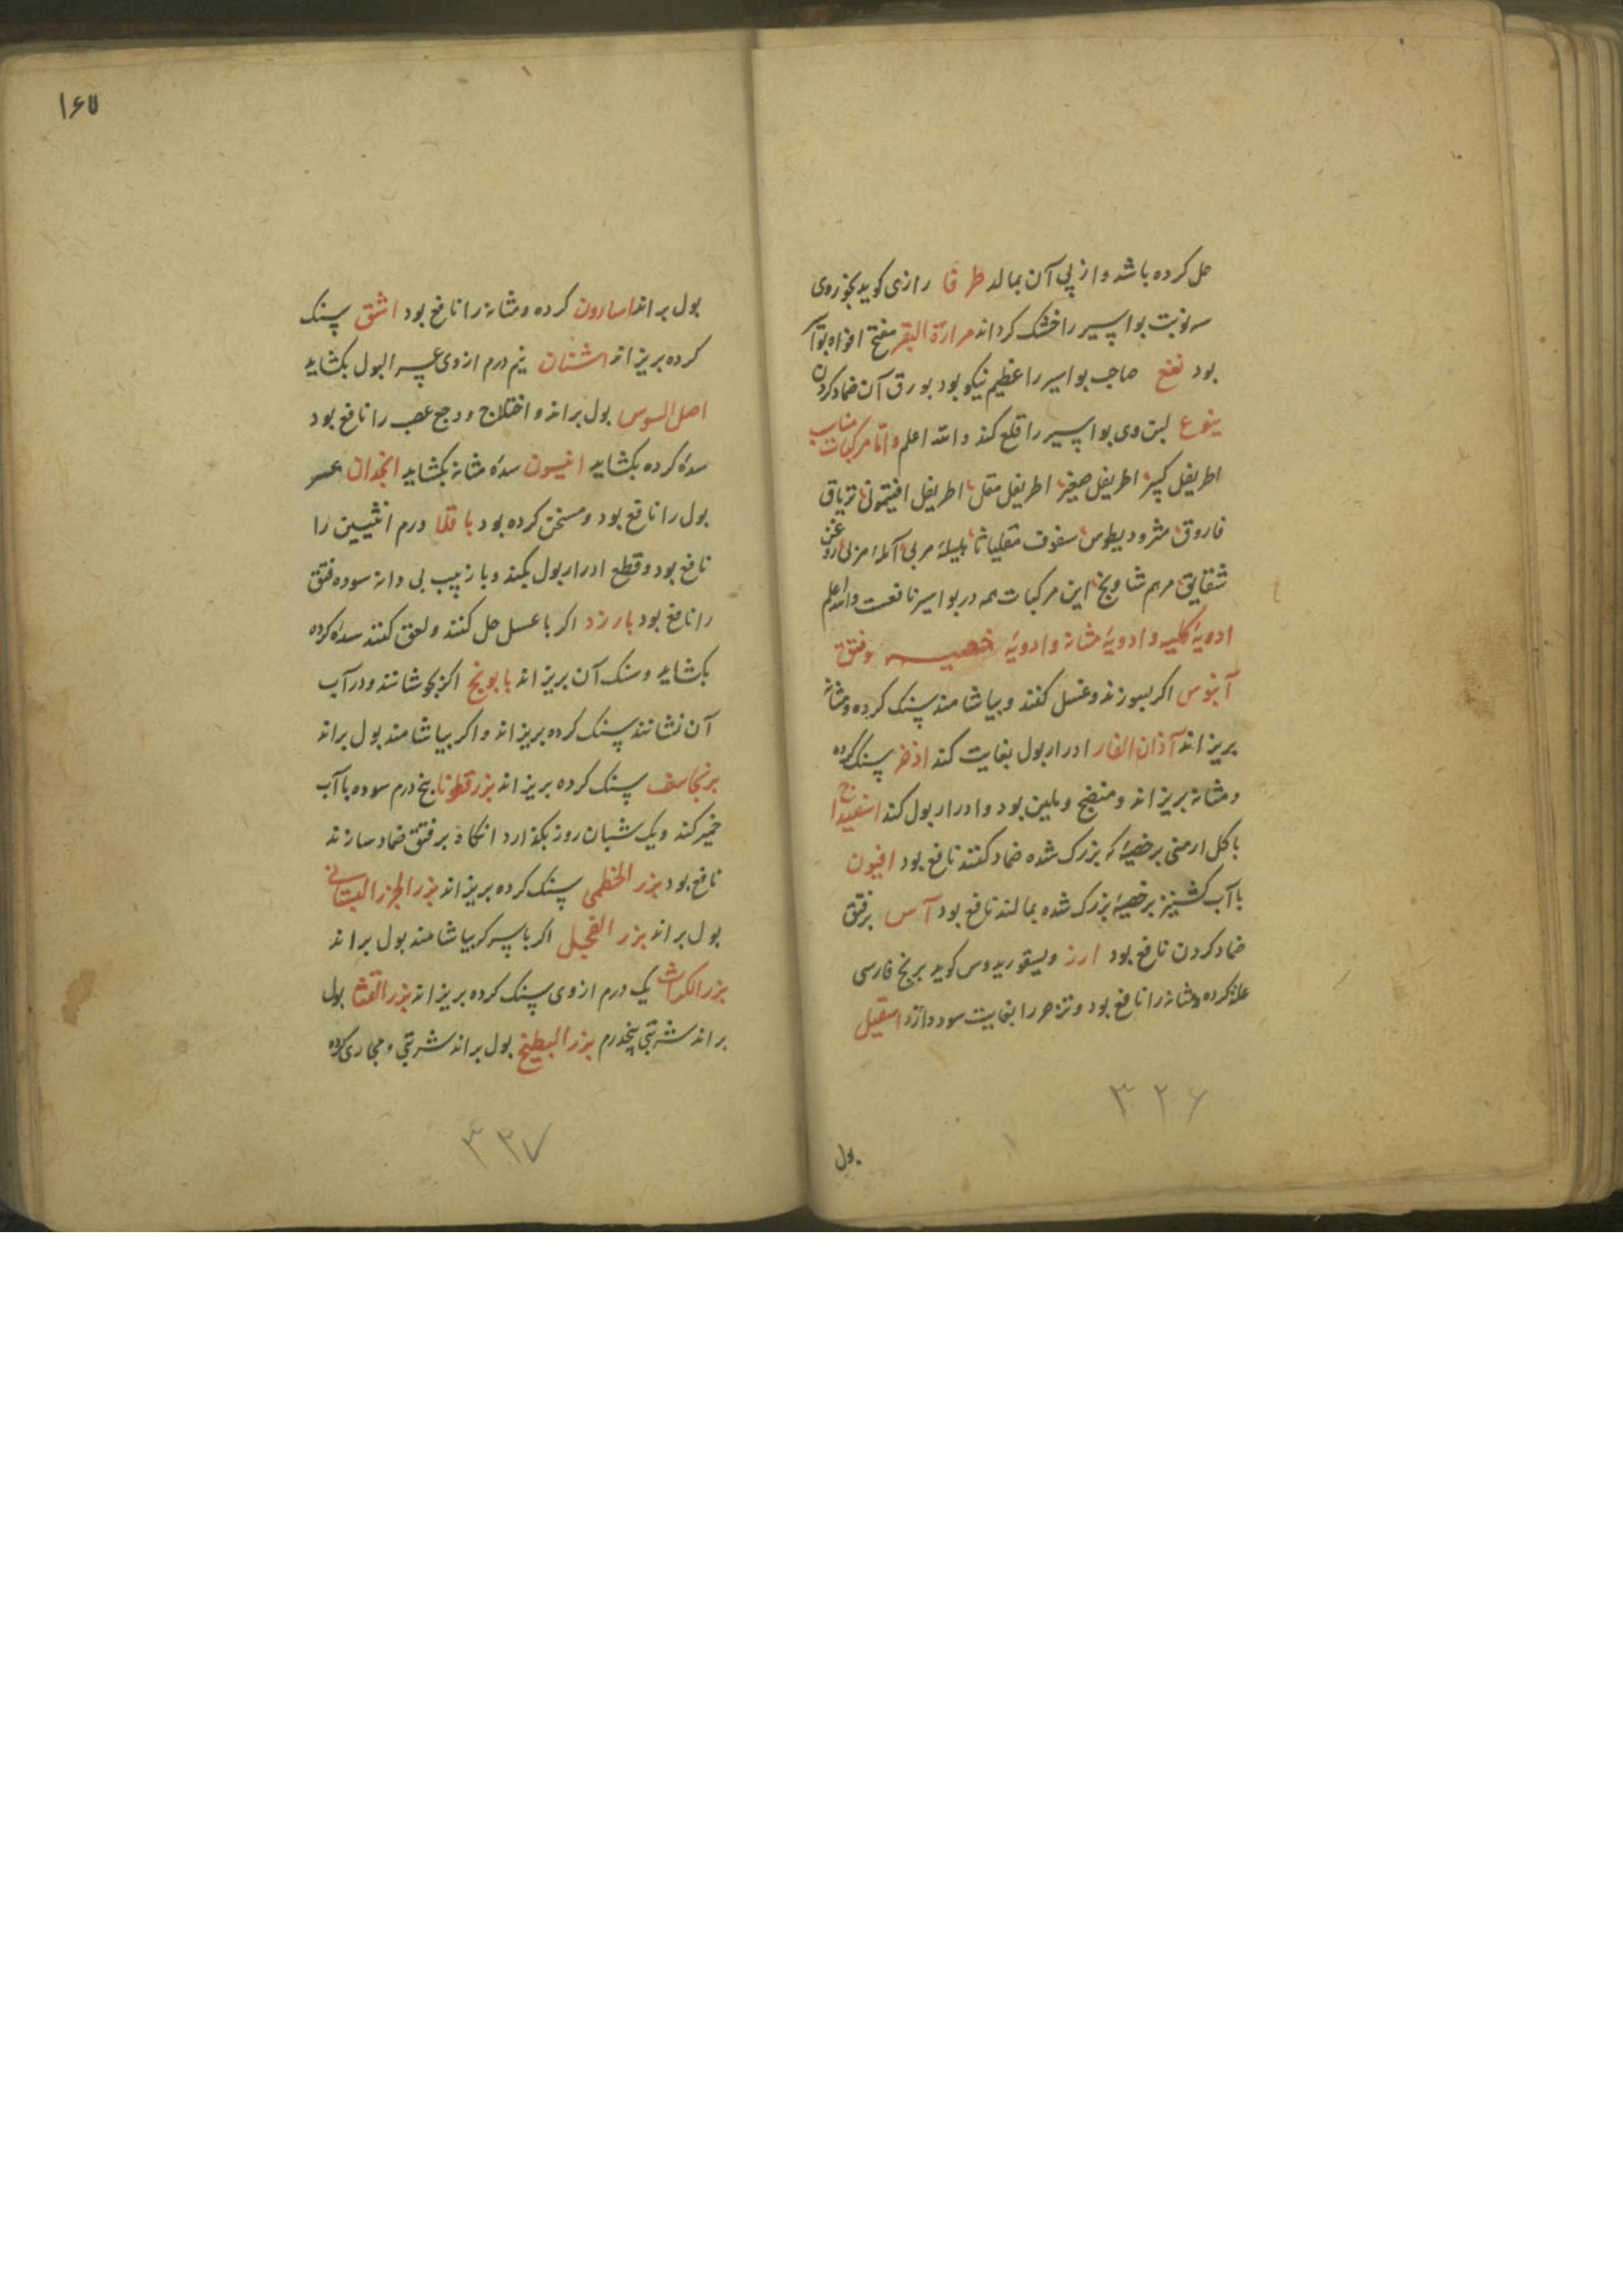 حل کرده باشد و از پی آن بمالد طرفا رازی کوید بخور وی
سه نوبت بواسیر را خشک کرداند مرارة البقر مفتح افواه بوآ
بود نعنع صاحب بواسیر را عظیم نیکو بود بورق آن ضماد کردن
یتوع لبن وی بواسیر را قلع کند والله اعلم واما مرکبات مناسب
اطریفل کبیر اطریفل صغیر اطریفل مقل اطریفل افتیمونی تریاق
فاروق مثرودیطوس سفوف مقلیاثا هلیلهٔ مربی آملهٔ مربی روغن
شقایق مرهم شاویخ این مرکبات همه در بواسیر نافعست والله اعلم
ادویهٔ کلیه و ادویهٔ مثانه و ادویهٔ خصیه و فتق
آبنوس اکر بسوزند و غسل کنند و بیاشامند سنک کرده و مثانه
بریزاند آذان الفار ادرار بول بغایت کند اذخر سنک کرده
و مثانه بریزاند و منضج و ملین بود و ادرار بول کند اسفیداج
با کل ارمنی بر خصیهٔ که بزرک شده ضماد کنند نافع بود افیون
با آب کشنیز بر خصیهٔ بزرک شده بمالند نافع بود آس بر فتق
ضماد کردن نافع بود ارز دیسقوریدوس کوید برنج فارسی
علة کرده و مثانه را نافع بود و تزحر را بغایت سود دارد اسقیل
۳۲۶
بول
۱۶۷
بول براند اسارون کرده و مثانه را نافع بود اشق سنک
کرده بریزاند اشنان نیم درم از وی عسر البول بکشاید
اصل السوس بول براند و اختلاج و وجع عصب را نافع بود
سدهٔ کرده بکشاید انیسون سدهٔ مثانه بکشاید انجدان عسر
بول را نافع بود و مسخن کرده بود باقلا ورم انثیین را
نافع بود و قطع ادرار بول بکند و با زبیب بی دانه سوده فتق
را نافع بود بارزد اکر با عسل حل کنند و لعق کنند سدهٔ کرده
بکشاید و سنک آن بریزاند بابونج اکر بجوشانند و در آب
آن نشانند سنک کرده بریزاند و اکر بیاشامند بول براند
برنجاسف سنک کرده بریزاند بزر قطونا پنج درم سوده با آب
خمیر کند و یک شبان روز بکذارد انکاه بر فتق ضماد سازند
نافع بود بزر الخطمی سنک کرده بریزاند بزر الجزر البستانی
بول براند بزر الفجل اکر با سرکه بیاشامند بول براند
بزر الکراث یک درم از وی سنک کرده بریزاند بزر القثا بول
براند شربتی پنجدرم بزر البطیخ بول براند شربتی و مجاری کرده
۳۳۷